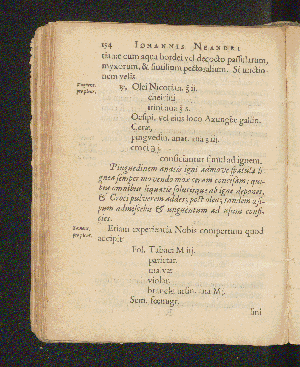 154 IOHANNIS NEANDRI
cum aqua hordei vel decocto passularum,
myxorum, & similium pectoralium. Si unctio-
nem velis.
℞. Olei Nicotian. ℥ ij.
Oesipi, vel ejus loco Axungiæ gallin.
Ceræ,
pingvedin. anat. ana ℥ iij.
croci
consciantur simul ad ignem.
Pinguedinem anatis igni admove spatula li
gnea semper movendo mox ceram concisam; qui-
bus omnibus liquatis solutisque ab igni depones,
& Croci pulverem adde; post olea; tandem œsi-
pum admiscebis & unguentum ad usum confi-
cies.
Etiam experientia Nobis compertum quod
accipit
Fol. Tabaci M iij.
parietar.
malvæ
violar.
Sem. fœnugr.
lini